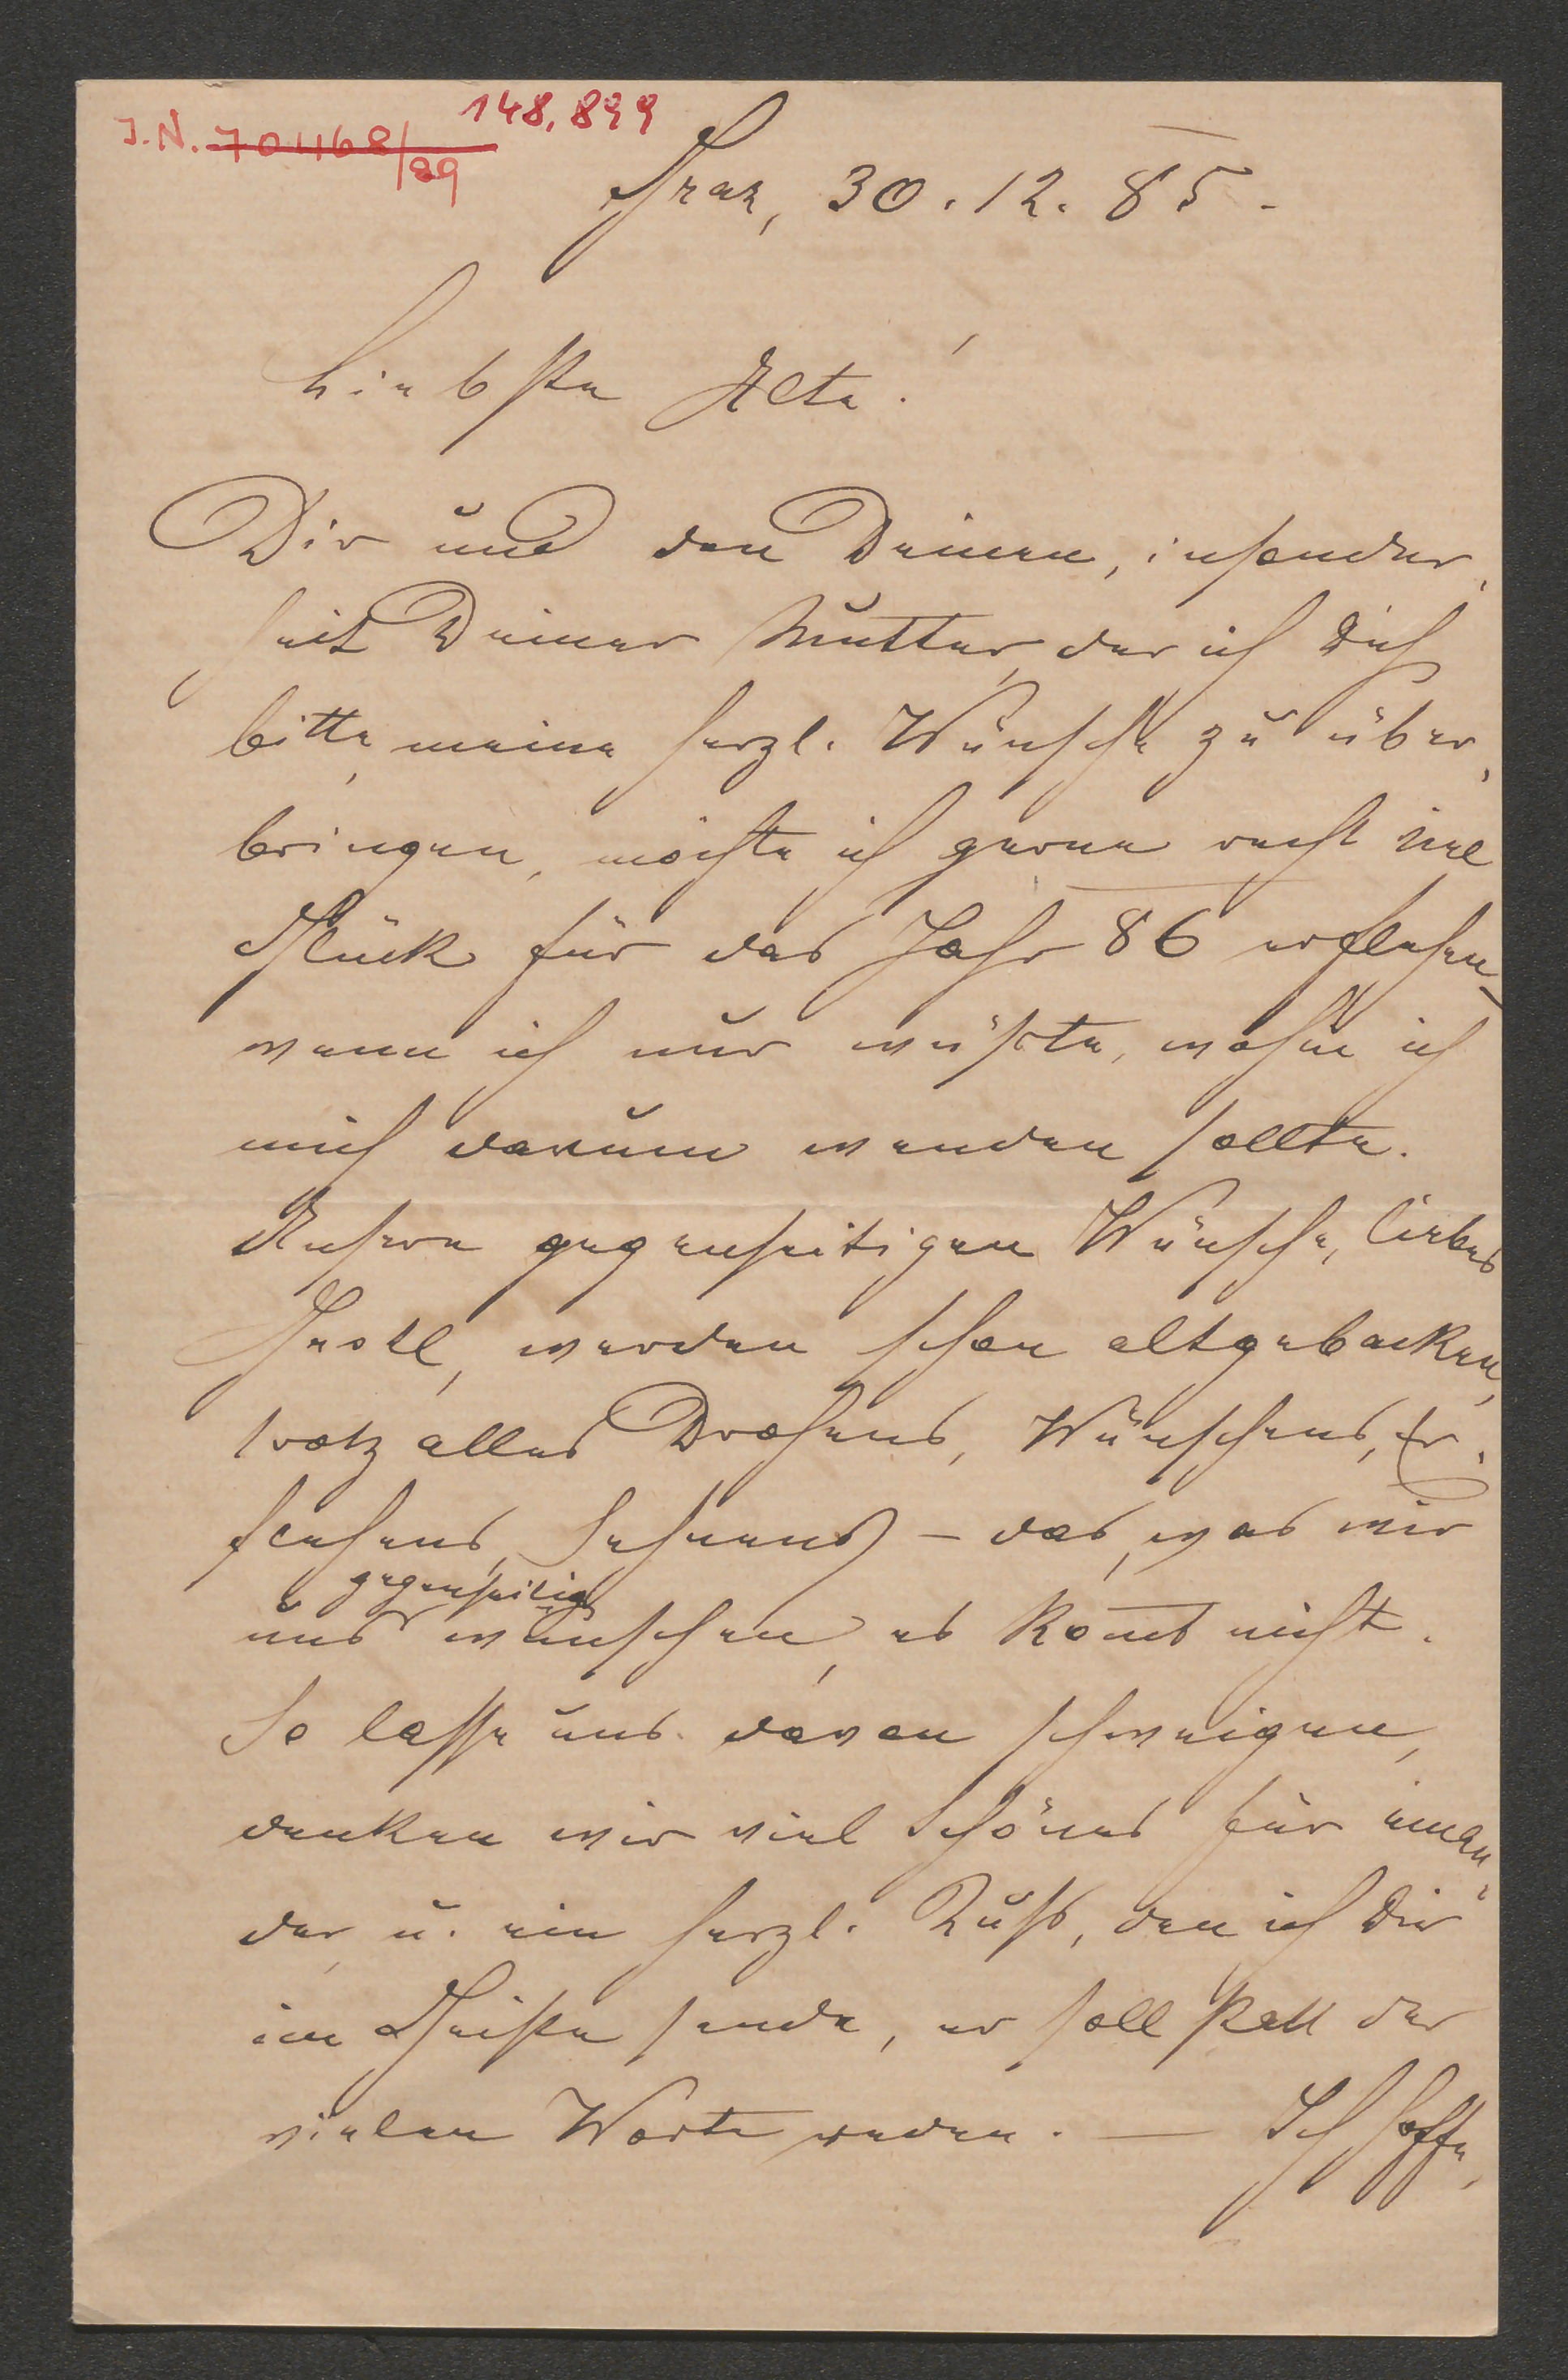 148.899
J.N. 70468/89
Graz, 30. 12. 85.
Liebste Alte!
Dir und den Deinen, insonder,
heit Deiner Mutter, der ich Dich
bitte, meine herzl. Wünsche zu über,
bringen, möchte ich gerne recht viel
Glück für das Jahr 86 erflehen,
wenn ich nur wüßte, wohin ich
mich darum wenden sollte.
Unsere gegenseitigen Wünsche, liebes
, werden schon altgebacken,
trotz alles Drohens, Wünschens, Er,
flehens, Sehnens – das, was wir
gegenseitig
uns wünschen, es kom̄t nicht.
So lasse uns davon schweigen,
denken wir viel Schönes für einan,
der, u. ein herzl. Kuß, den ich Dir
im Geiste sende, er soll statt der
vielen Worte reden. — Ich hoffe,